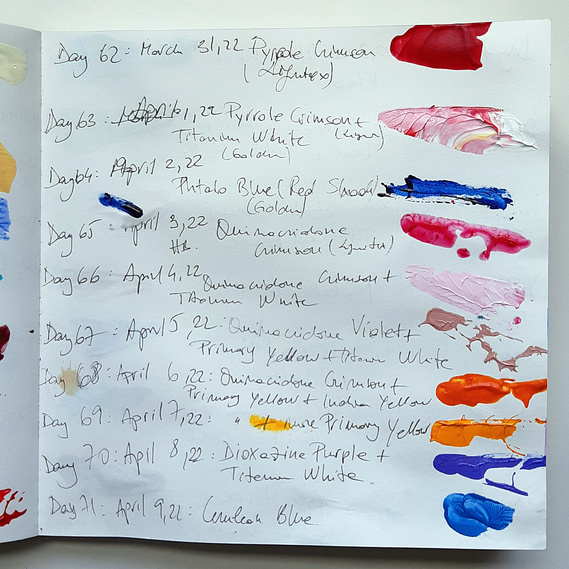 Day 62: March 31, 22 Pyrrole Crimson
(Liquitex)
Day 63: April 1, 22 Pyrrole Crimson +
Titanium White
(Golden)
Day 64: April 2, 22
Phtalo Blue (Red Shade)
(Golden)
Day 65 April 3, 22 Quinacridone
Crimson (Liquitex)
Day 66: April 4, 22 Quinacidone Crimson +
Titanium White
Day 67: April 5 22: Quinacidone Violet +
Primary Yellow + Titanium White
Day 68: April 6, 22: Quinacidone Crimson +
Primary Yellow + Indian Yellow
Day 69: April 7, 22: " + more Primary Yellow
Day 70: April 8, 22: Dioxazine Purple +
Titanium White
Day 71: April 9, 22: Cerulean Blue